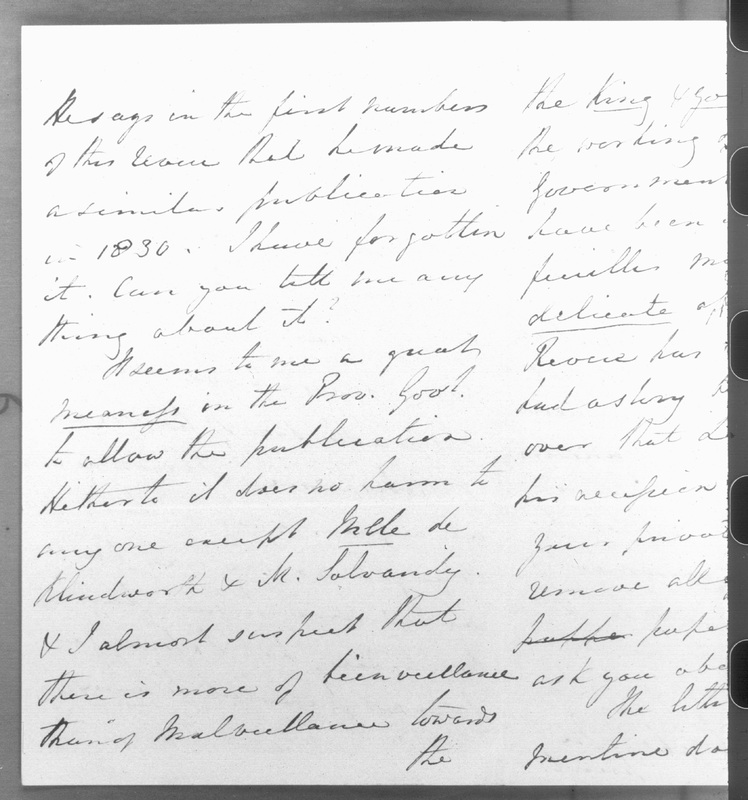 He says in the first numbers
of this Revue that he made
a similar publication
in 1830. I have forgotten
it. Can you tell me any
thing about it?
It seems to me a great
meaness in the Prov. Govt.
to allow the publication.
Hitherto it does no harm to
any one except Mlle de
Klindworth & M. Salvandy.
& I almost suspect that
there is more of bienveillance
than of Malveillance towards
the
the King & Go
the working
Government
have been
feuilles
delicate
Revue has
had
over that
his
your
remove all
pape
ask you abo
The
mentine do